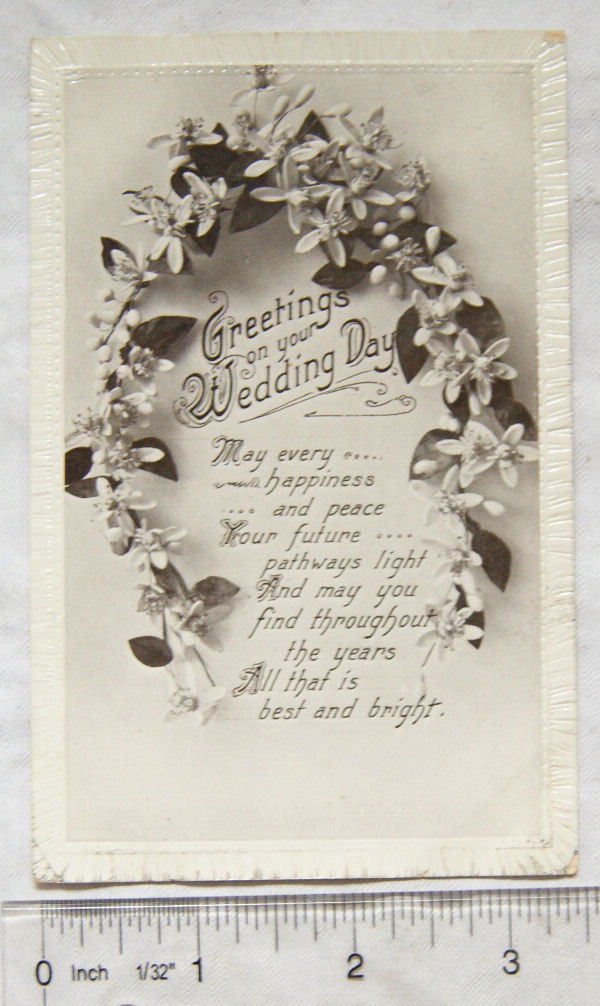 Greetings
on your
Wedding Day
May every
happiness
and peace
Your future
pathways light
And may you
find throughout
the years
All that is
best and bright.
0 Inch 1/32" 1 2 3